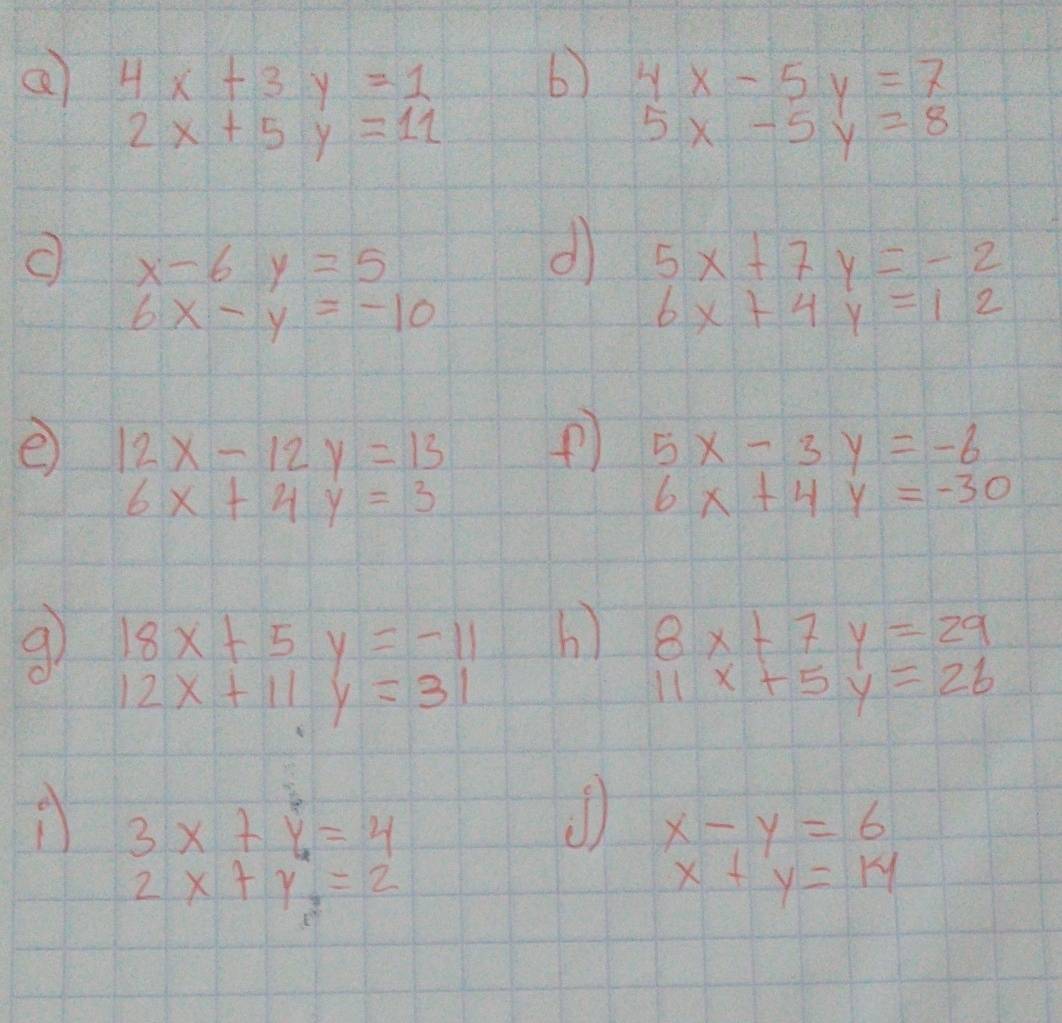 a) 4x + 3y = 1
2x + 5y = 11
b) 4x - 5y = 7
5x - 5y = 8
c) x - 6y = 5
6x - y = -10
d) 5x + 7y = -2
6x + 4y = 12
e) 12x - 12y = 13
6x + 4y = 3
f) 5x - 3y = -6
6x + 4y = -30
g) 18x + 5y = -11
12x + 11y = 31
h) 8x + 7y = 29
11x + 5y = 26
i) 3x + y = 4
2x + y = 2
j) x - y = 6
x + y = 14